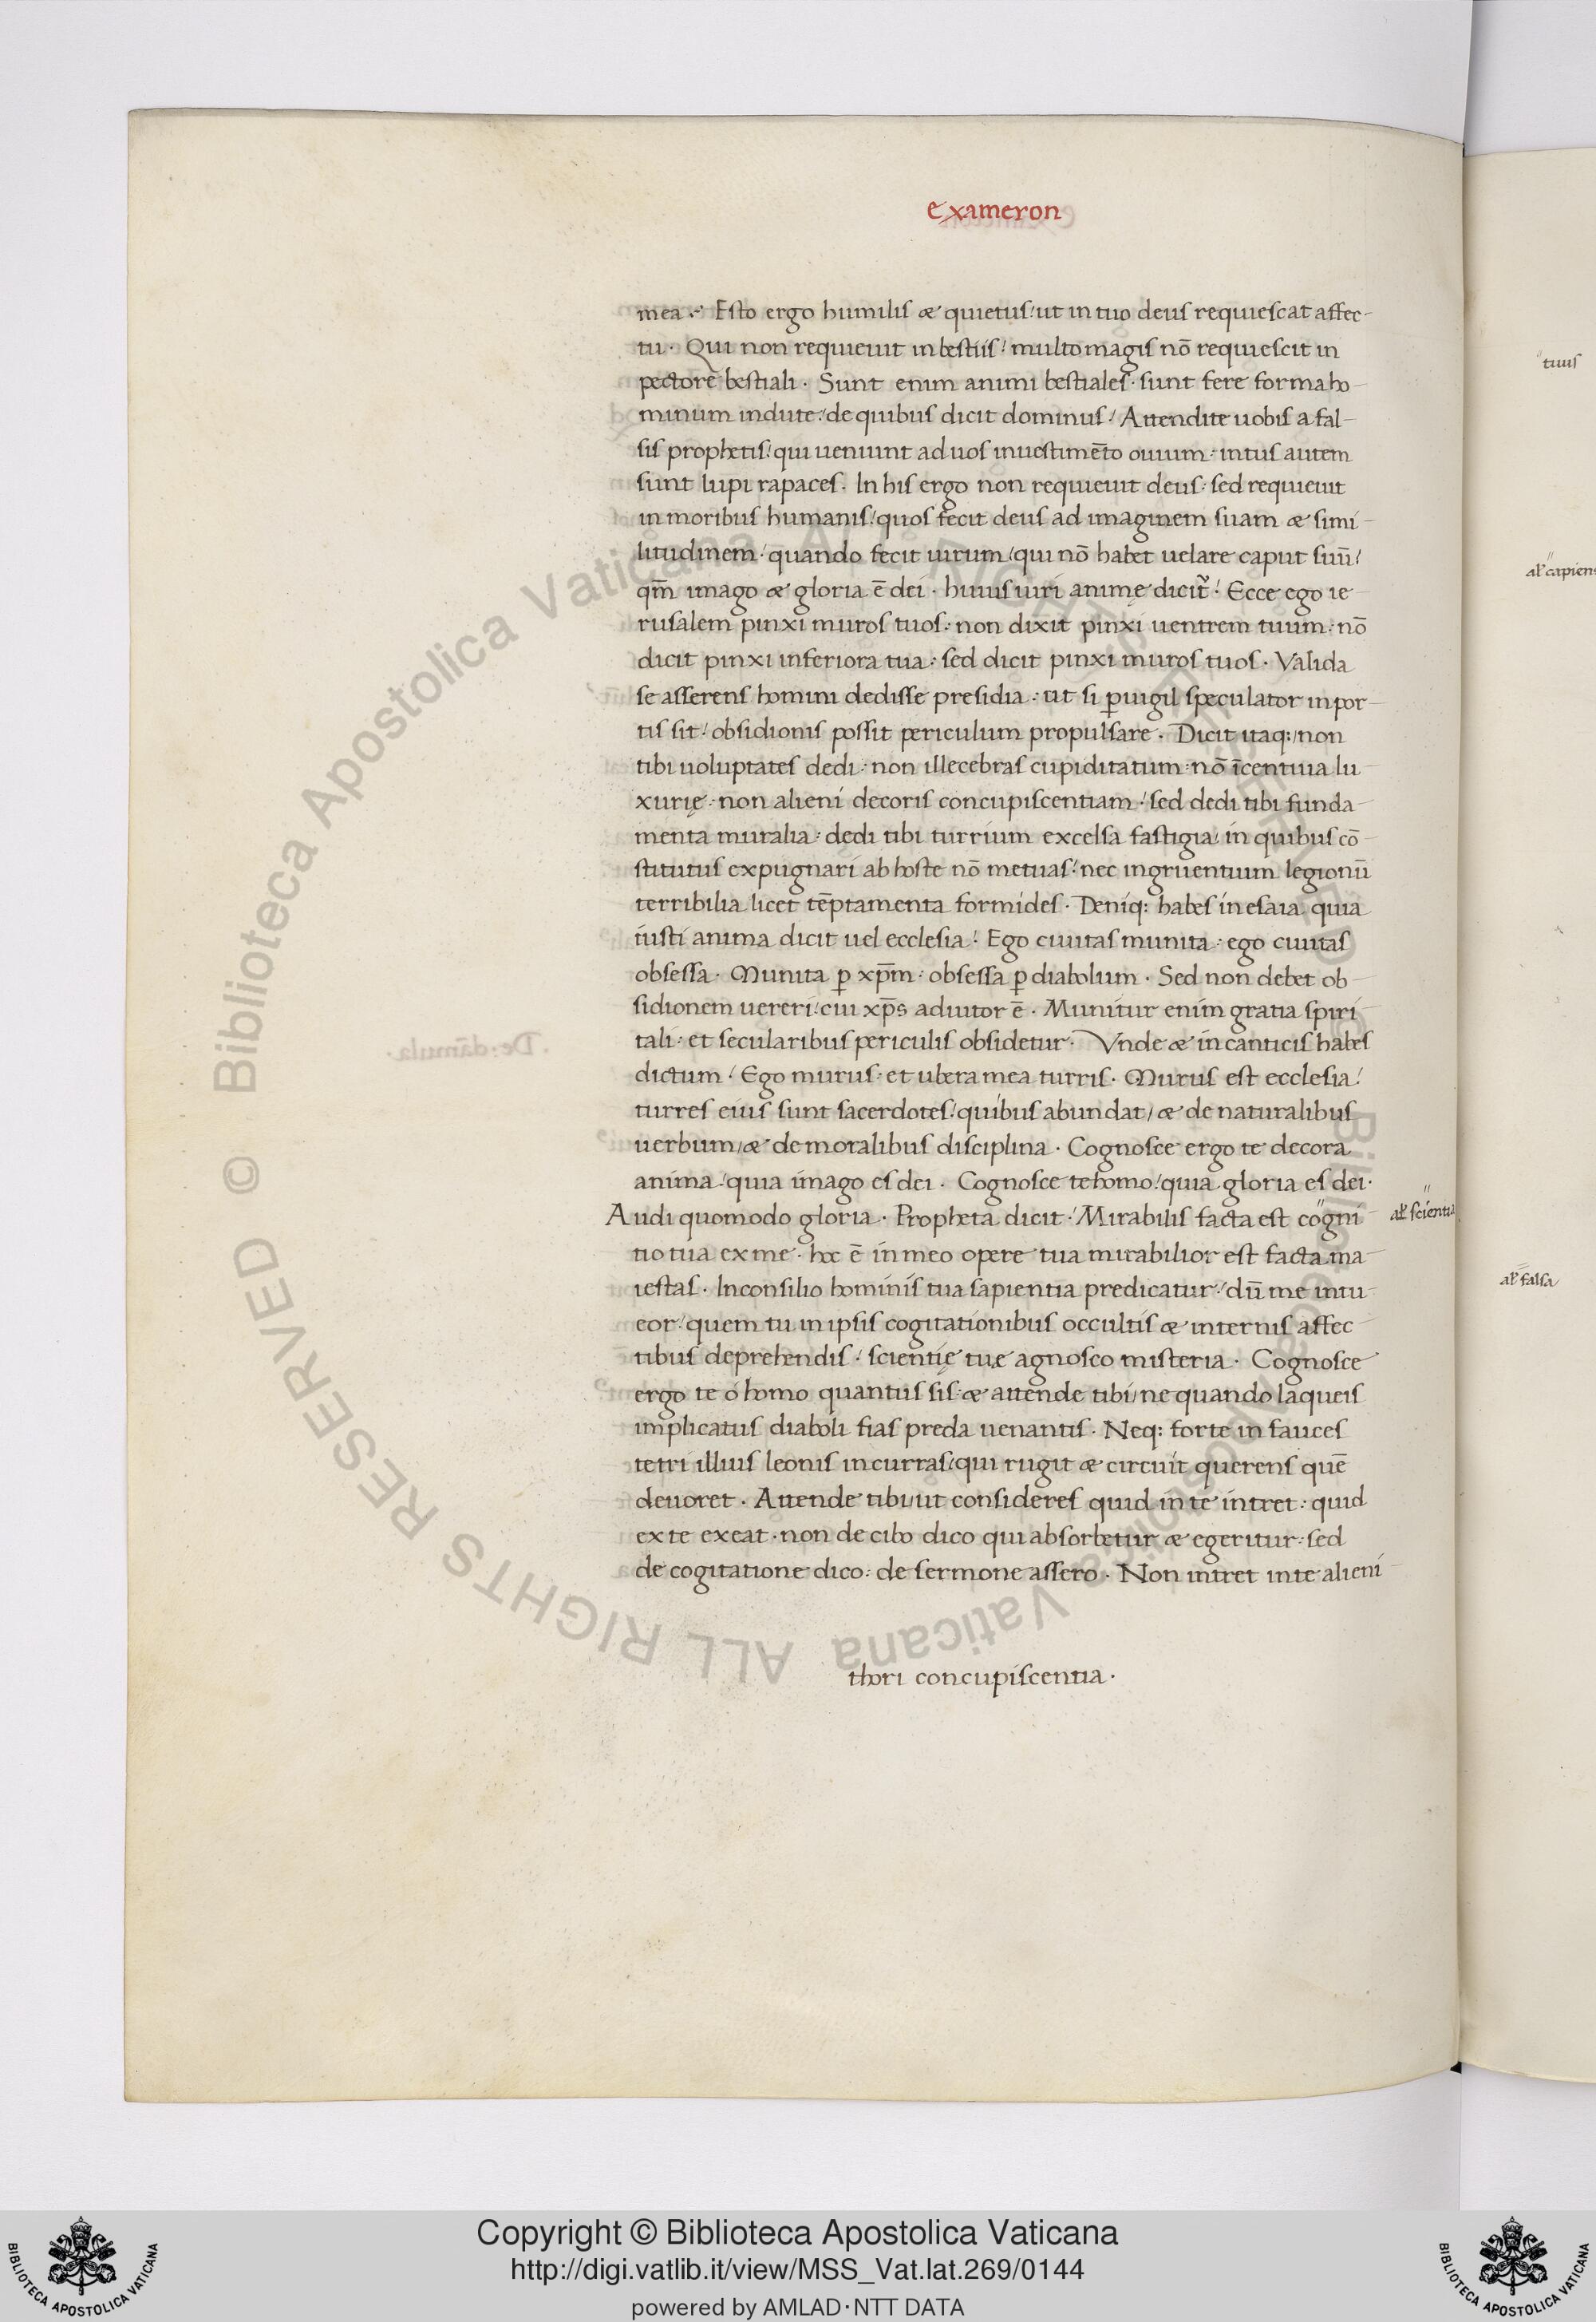 exameron
mea. Esto ergo humilis æ quietus: ut in tuo deus requiescat affec-
tu. Qui non requieuit in bestiis: multo magis nō requiescit in
pectore bestiali. Sunt enim animi bestiales. sunt fere forma ho-
minum indute: de quibus dicit dominus: Attendite uobis a fal-
sis prophetis: qui ueniunt ad uos in uestimēto ouium: intus autem
sunt lupi rapaces. In his ergo non requieuit deus: sed requieuit
in moribus humanis: quos fecit deus ad imaginem suam æ simi-
litudinem: quando fecit uirum: qui nō habet uelare caput suū:
qm̄ imago æ gloria ē dei. huius uiri animę dicit̃: Ecce ego ie-
rusalem pinxi muros tuos: non dixit pinxi uentrem tuum: nō
dicit pinxi inferiora tua: sed dicit pinxi muros tuos. Valida
se asserens homini dedisse presidia: ut si ꝑuigil speculator in por-
tis sit: obsidionis possit periculum propulsare. Dicit itaq: non
tibi uoluptates dedi: non illecebras cupiditatum: nō īcentiua lu-
xurię: non alieni decoris concupiscentiam: sed dedi tibi funda-
menta muralia: dedi tibi turrium excelsa fastigia: in quibus cō-
stitutus expugnari ab hoste nō metuas: nec ingruentium legionū
terribilia licet tēptamenta formides. Deniq: habes in esaia quia
iusti anima dicit uel ecclesia: Ego ciuitas munita: ego ciuitas
obsessa. Munita ꝑ xp̄m: obsessa ꝑ diabolum. Sed non debet ob-
sidionem uereri: cui xp̄s adiutor ē. Munitur enim gratia spiri-
tali: et secularibus periculis obsidetur. Vnde æ in canticis habes
dictum: Ego murus: et ubera mea turris. Murus est ecclesia:
turres eius sunt sacerdotes: quibus abundat/ æ de naturalibus
uerbum/ æ de moralibus disciplina. Cognosce ergo te decora
anima: quia imago es dei. Cognosce te homo: quia gloria es dei.
Audi quomodo gloria. Propheta dicit: Mirabilis facta est cogni-
al' scientia
tio tua ex me. hoc ē in meo opere tua mirabilior est facta ma-
iestas. In consilio hominis tua sapientia predicatur: dū me intu-
eor: quem tu in ipsis cogitationibus occultis æ internis affec-
tibus deprehendis: scientię tuę agnosco misteria. Cognosce
ergo te o homo quantus sis: æ attende tibi/ ne quando laqueis
implicatus diaboli fias preda uenantis. Neq: forte in fauces
tetri illius leonis incurras: qui rugit æ circuit querens quē
deuoret. Attende tibi/ ut consideres quid in te intret: quid
ex te exeat. non de cibo dico qui absorbetur æ egeritur: sed
de cogitatione dico: de sermone assero. Non intret in te alieni
thori concupiscentia.
tuus
al' capiens
al' falsa
© Biblioteca Apostolica Vaticana ALL RIGHTS RESERVED
© Biblioteca Apostolica Vaticana ALL RIGHTS RESERVED
Copyright © Biblioteca Apostolica Vaticana
http://digi.vatlib.it/view/MSS_Vat.lat.269/0144
powered by AMLAD·NTT DATA
BIBLIOTECA APOSTOLICA VATICANA
BIBLIOTECA APOSTOLICA VATICANA